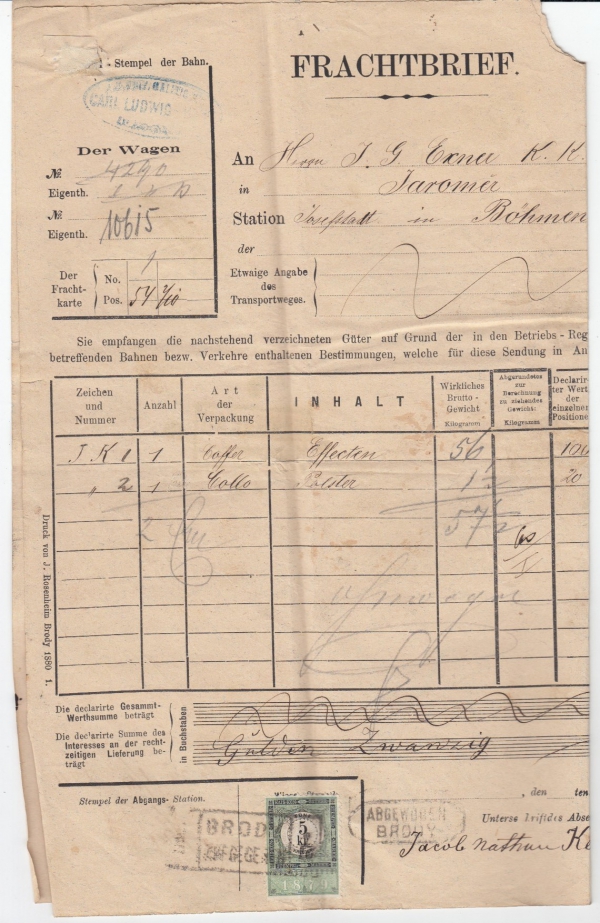 - Stempel der Bahn.
FRACHTBRIEF.
CARL LUDWIG
Der Wagen
№ 4290
Eigenth.
№
Eigenth. 10615
Der Fracht-karte
No. 1
Pos. 54
An Herrn J. G. Exner K. K.
in Jaromer
Station Josefstadt in Böhmen
der
Etwaige Angabe
des
Transportweges.
Sie empfangen die nachstehend verzeichneten Güter auf Grund der in den Betriebs-Reg
betreffenden Bahnen bezw. Verkehre enthaltenen Bestimmungen, welche für diese Sendung in An
Zeichen und Nummer
Anzahl
Art der Verpackung
INHALT
Wirkliches Brutto-Gewicht
Kilogramm
Abgerundetes zur Berechnung zu ziehendes Gewicht:
Kilogramm
Declarir-
ter Wert
der
einzelner
Positione
J. K 1 1 Coffer Effecten 56 100
„ 2 1 Collo Polster 1½ 20
57½
60
Druck von J. Rosenheim Brody 1880 1.
Die declarirte Gesammt-
Werthsumme beträgt
Die declarirte Summe des
Interesses an der recht-
zeitigen Lieferung be-
trägt
in Buchstaben
Gulden Zwanzig
Stempel der Abgangs-Station.
, den ten
BRODY
5
kr
ABGEWOGEN
BRODY
Unterschriftdes Abse
Jacob Nathan